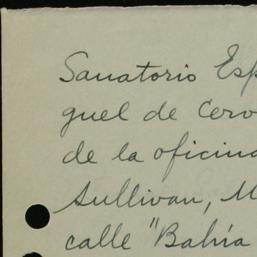 Sanatorio Esp
guel de Cerv
de la oficina
Sullivan, M
calle "Bahía